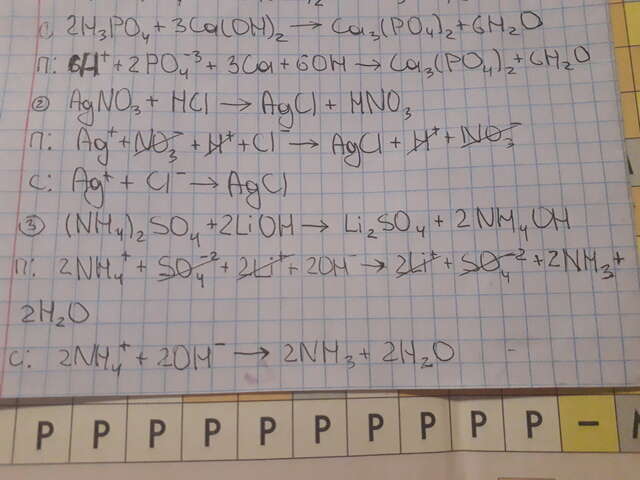 C, 2H₃PO₄ + 3Ca(OH)₂ → Ca₃(PO₄)₂ + 6H₂O
П: 6H⁺ + 2PO₄⁻³ + 3Ca + 6OH → Ca₃(PO₄)₂ + 6H₂O
② AgNO₃ + HCl → AgCl + HNO₃
П: Ag⁺ + NO₃⁻ + H⁺ + Cl⁻ → AgCl + H⁺ + NO₃⁻
C: Ag⁺ + Cl⁻ → AgCl
③ (NH₄)₂SO₄ + 2LiOH → Li₂SO₄ + 2NH₄OH
П: 2NH₄⁺ + SO₄⁻² + 2Li⁺ + 2OH⁻ → 2Li⁺ + SO₄⁻² + 2NH₃ +
2H₂O
C: 2NH₄⁺ + 2OH⁻ → 2NH₃ + 2H₂O
P P P P P P P P P P –